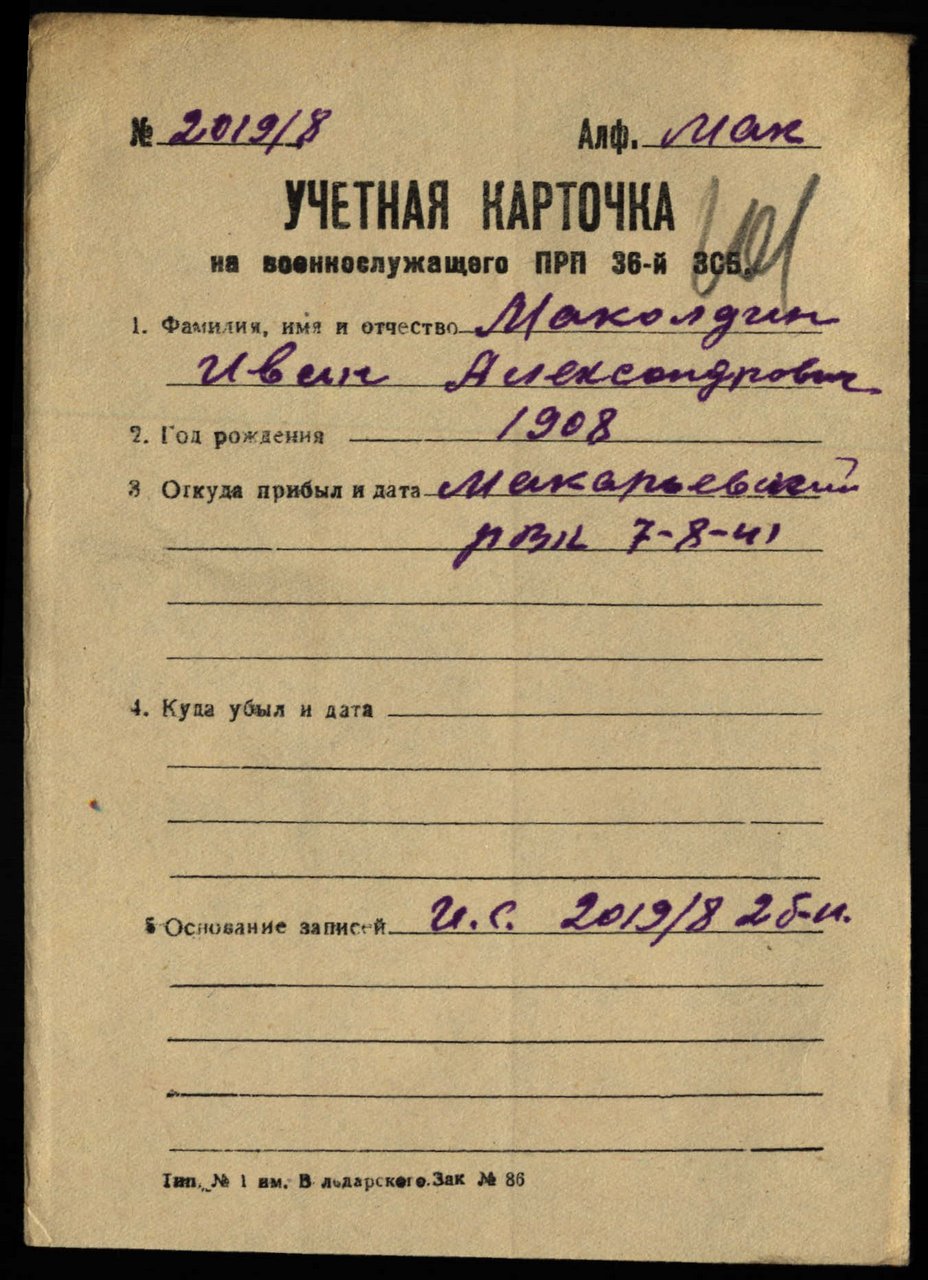 № 2019/8 Алф. Мак
УЧЕТНАЯ КАРТОЧКА
на военнослужащего ПРП 36-й ЗСБ.
1. Фамилия, имя и отчество Маколдин
Иван Александрович
2. Год рождения 1908
3 Откуда прибыл и дата Макарьевский
рвк 7-8-41
4. Куда убыл и дата
5 Основание записей И.С. 2019/8 2б-н.
Тип. № 1 им. В лодарского.Зак № 86